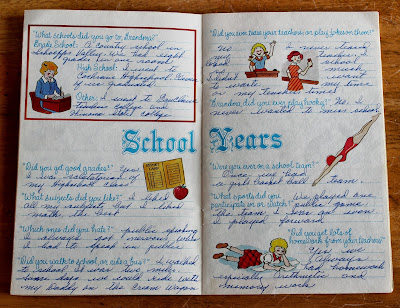 "What schools did you go to, Grandma?"
Grade School: A country school in
Valley. We had eight
grades in one room
High School: I went to
Cochrane Highschool.
of us graduated
Other: I went to
teachers college and
Winona State college
School Years
"Did you get good grades?" Yes
I was of
my Highschool class
"What subjects did you like?" I liked
all my I liked
math. the best
"Which ones did you hate?" public speaking
I always got nervous when
I had to speak in public
"Did you walk to school, or ride a bus?" I walked
to School it was two miles.
I would ride with
my daddy in the Cream Wagon
"Did you ever tease your teachers or play jokes on them?"
No I never teased
my teachers.
school
much
student want
to waste my time
or my teachers time
"Grandma, did you ever play hooky?" No, I
never wanted to miss school
"Were you ever on a school team?"
Once we had
a girls basket ball team.
"What sports did you
participate in or watch?" We played one game
the team I was on won.
I played forward
"Did you get lots of
homework from your teachers?"
Yes we
always
had homework
especially arithmetic and
memory work